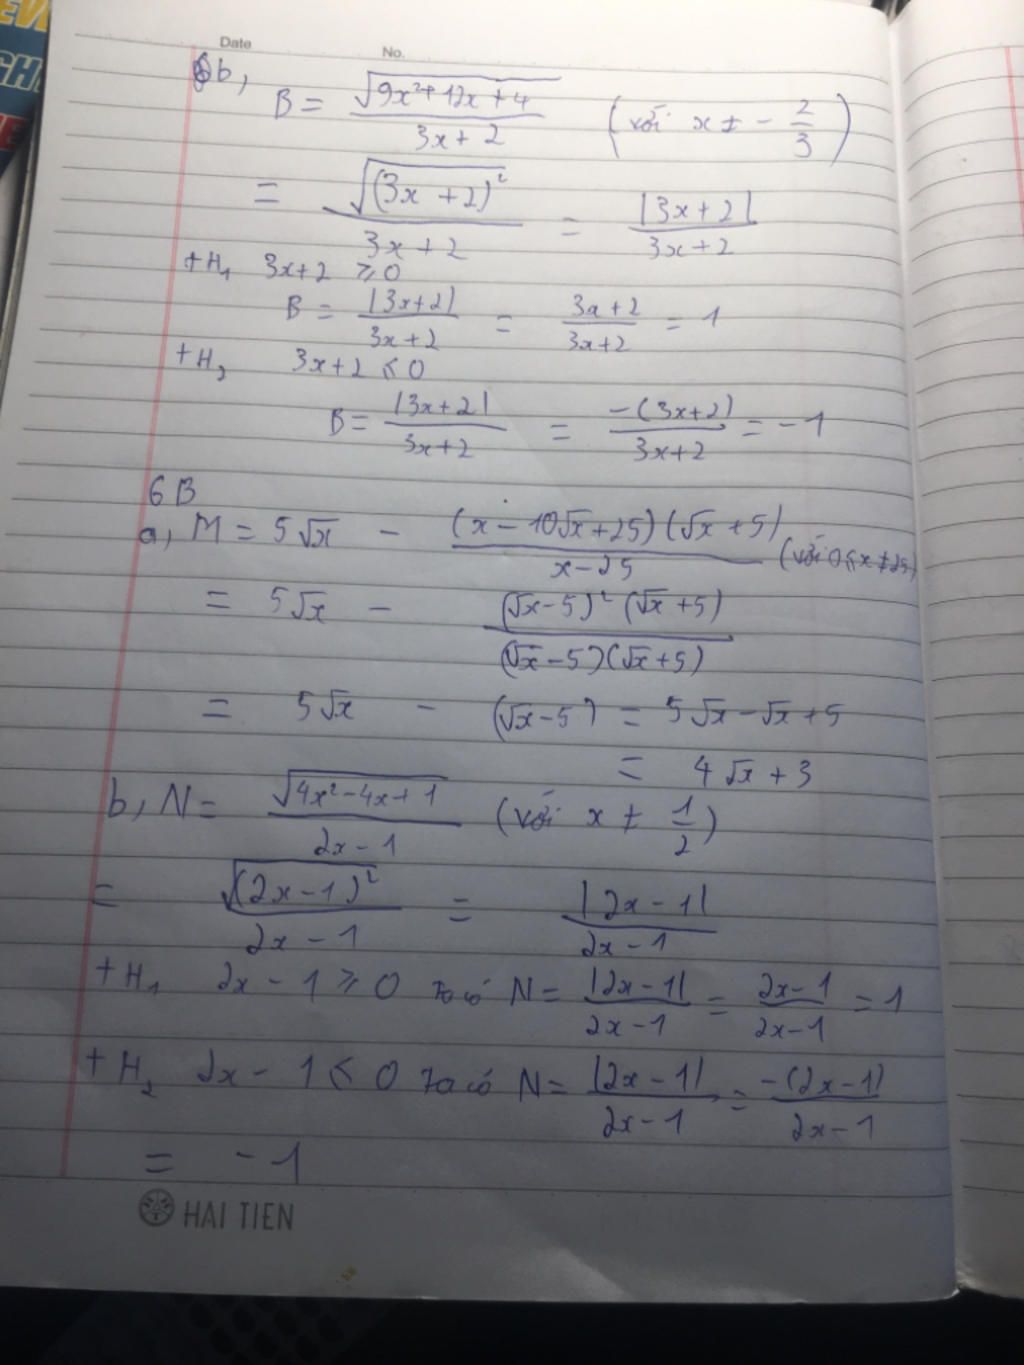 Date No.
b, B = √(9x²+12x+4) / (3x+2) (với x ≠ -2/3)
= √((3x+2)²) / (3x+2) = |3x+2| / (3x+2)
+H₁ 3x+2 ≥ 0
B = |3x+2| / (3x+2) = (3x+2) / (3x+2) = 1
+H₂ 3x+2 < 0
B = |3x+2| / (3x+2) = -(3x+2) / (3x+2) = -1
6B
a, M = 5√x - (x-10√x+25)(√x+5) / (x-25) (với 0≤x≠25)
= 5√x - (√x-5)²(√x+5) / (√x-5)(√x+5)
= 5√x - (√x-5) = 5√x-√x+5
= 4√x+3
b, N = √(4x²-4x+1) / (2x-1) (với x ≠ 1/2)
= √((2x-1)²) / (2x-1) = |2x-1| / (2x-1)
+H₁ 2x-1 ≥ 0 Ta có N = |2x-1| / (2x-1) = (2x-1) / (2x-1) = 1
+H₂ 2x-1 < 0 Ta có N = |2x-1| / (2x-1) = -(2x-1) / (2x-1)
= -1
HAI TIEN